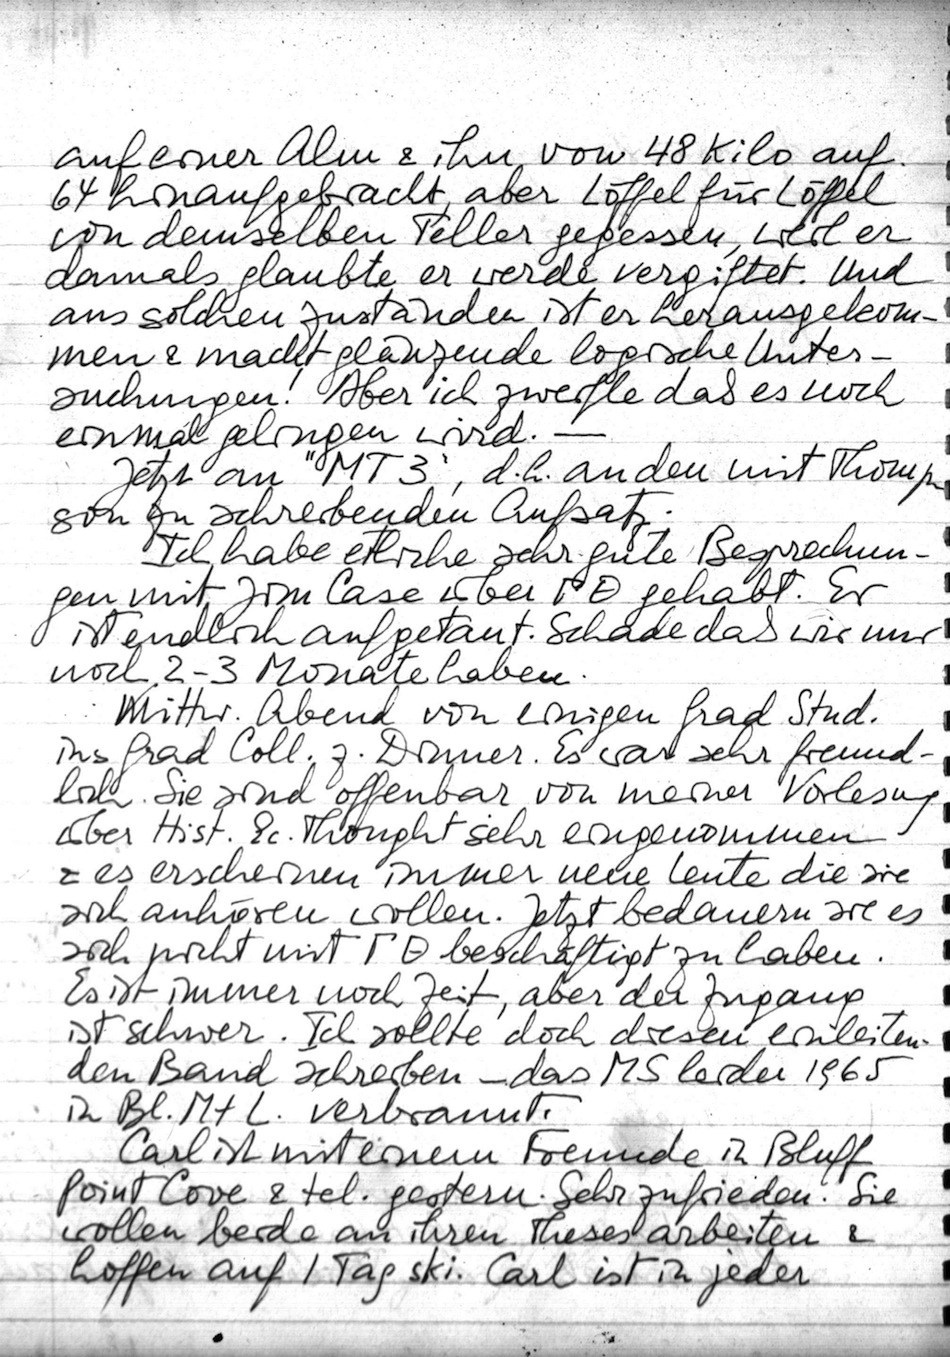 auf einer Alm & ihn von 48 Kilo auf
64 hinaufgebracht, aber Löffel für Löffel
von demselben Teller gegessen, weil er
damals glaubte er werde vergiftet. Und
aus solchen Zuständen ist er herausgekom-
men & macht glänzende logische Unter-
suchungen! Aber ich zweifle das es noch
einmal gelingen wird. —
Jetzt an "MT 3", d.h. an den mit Thomp-
son zu schreibenden Aufsatz.
Ich habe etliche sehr gute Besprechun-
gen mit Jim Case über ΓΘ gehabt. Er
ist endlich aufgetaut. Schade das wir nur
noch 2-3 Monate haben.
Mittw. Abend von einigen Grad Stud.
ins Grad Coll. z. Dinner. Es war sehr freund-
lich. Sie sind offenbar von meiner Vorlesung
über Hist. Ec. Thought sehr eingenommen
& es erscheinen immer neue Leute die sie
sich anhören wollen. Jetzt bedauern sie es
sich nicht mit ΓΘ beschäftigt zu haben.
Es ist immer noch Zeit, aber der Zugang
ist schwer. Ich sollte doch diesen einleiten-
den Band schreiben – das MS leider 1965
in Bl. Mt L. verbrannt.
Carl ist mit einem Freunde in Bluff
Point Cove & tel. gestern. Sehr zufrieden. Sie
wollen beide an ihren Theses arbeiten &
hoffen auf 1 Tag ski. Carl ist in jeder